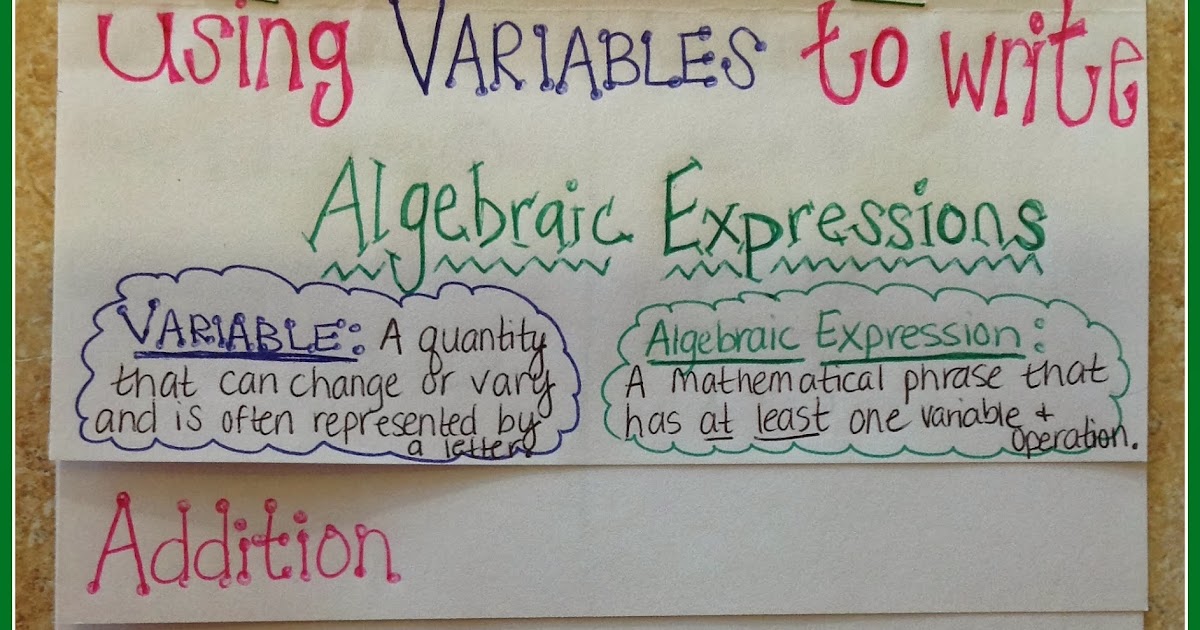 Using VARIABLES to write
Algebraic Expressions
VARIABLE: A quantity
that can change or vary
and is often represented by
a letter.
Algebraic Expression:
A mathematical phrase that
has at least one variable +
operation.
Addition